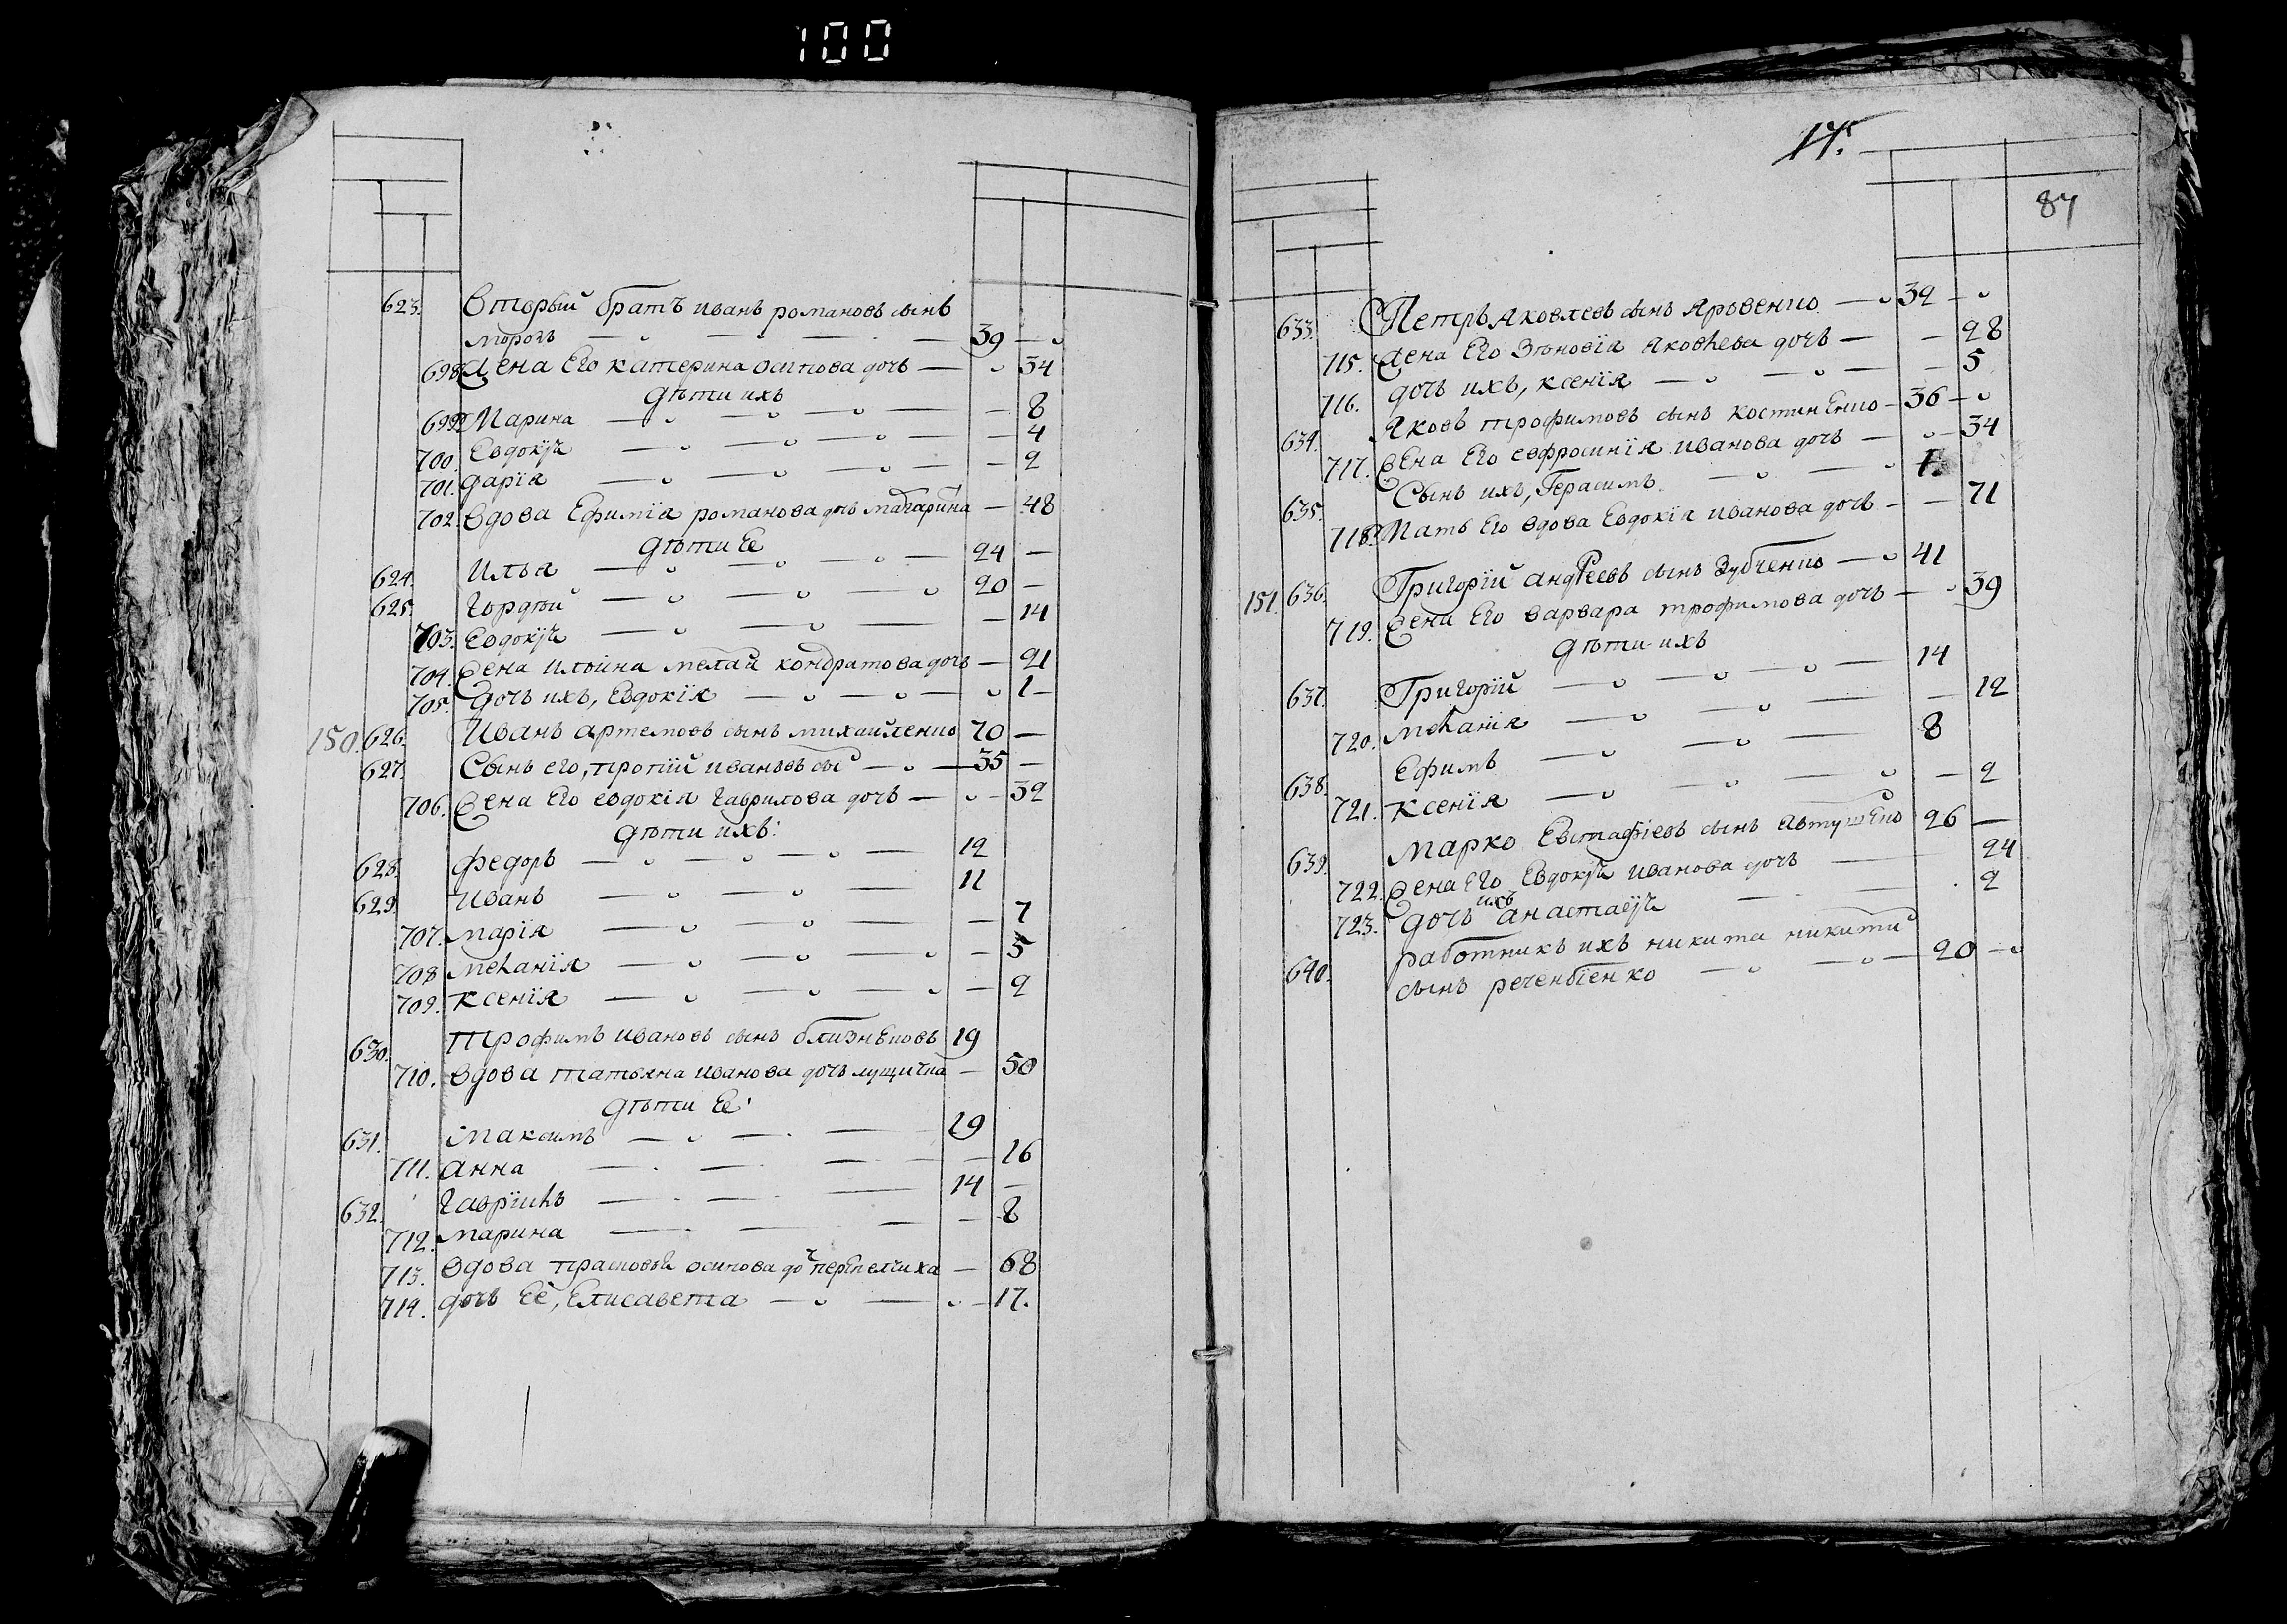 100
623. Вторый братъ иванъ романовъ сынъ
морочъ — 39 —
698. Жена Его катерина осипова дочь — 34
дѣти ихъ
699. Марина — 8
700. Евдокїѧ — 4
701. дарїя — 2
702. вдова Ефимїя романова дочь магарина — 48
дѣти Ее
624. Илья — 24 —
625. Гордѣй — 20 —
703. Евдокїѧ — 14
704. Жена ильина мелан кондратова дочь — 21
705. дочь ихъ, Евдокїя — 1 —
150. 626. Иванъ артемовъ сынъ михайленко 70 —
627. Сынъ его, иванъвъ сы — 35 —
706. Жена Его евдокїя гаврилова дочь — 32
дѣти ихъ:
628. федоръ — 12
629. Иванъ — 11
707. марїя — 7
708. меланїя — 5
709. ксенїя — 2
630. трофимъ ивановъ сынъ близнЕковъ 19
710. вдова татьяна иванова дочь лущичка — 50
дѣти Ее:
631. Максимъ — 19
711. анна — 16
632. гаврїилъ — 14 —
712. марина — 8
713. вдова прасковья осипова до ч перепелчиха — 68
714. дочь Ее, Елисавета — 17.
17.
87
633. Петръ яковлевъ сынъ яровенко — 32 —
715. Жена Его Зѣновїя яковлева дочь — 28
716. дочь ихъ, ксенїя — 5
634. яковъ трофимовъ сынъ костинЕнко — 36 —
717. Жена Его евфросинїя иванова дочь — 34
635. Сынъ ихъ, Герасимъ — 1.
718. Мать Его вдова Евдокїя иванова дочь — 71
151. 636. Григорїй андреевъ сынъ Зубченко — 41
719. Жена Его варвара трофимова дочь — 39
дѣти ихъ
637. Григорїй — 14
720. меланїя — 12
638. Ефимъ — 8
721. ксенїя — 2
639. марко Евстафїевъ сынъ Автушенко 26 —
722. Жена Его Евдокїѧ иванова дочь — 24
723. дочь ихъ анастасїѧ — 2
640. работникъ ихъ никита никити
сынъ — 20 —